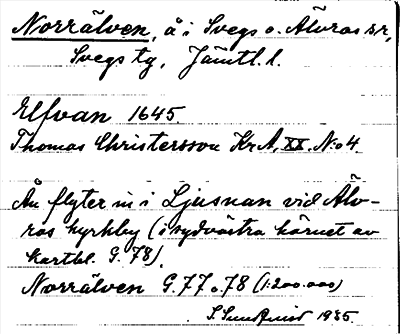 Norrälven, å i Svegs o. Älvros snr,
Svegs tg, Jämtl. l.
Elfvan 1645.
Thomas Christersson Kr. A, XX. N:o 4.
Ån flyter in i Ljusnan vid Älv-
ros kyrkby (i sydvästra hörnet av
kartbl. G. 78).
Norrälven G. 77 o. 78 (1:200.000)
S. Sundquist 1935.